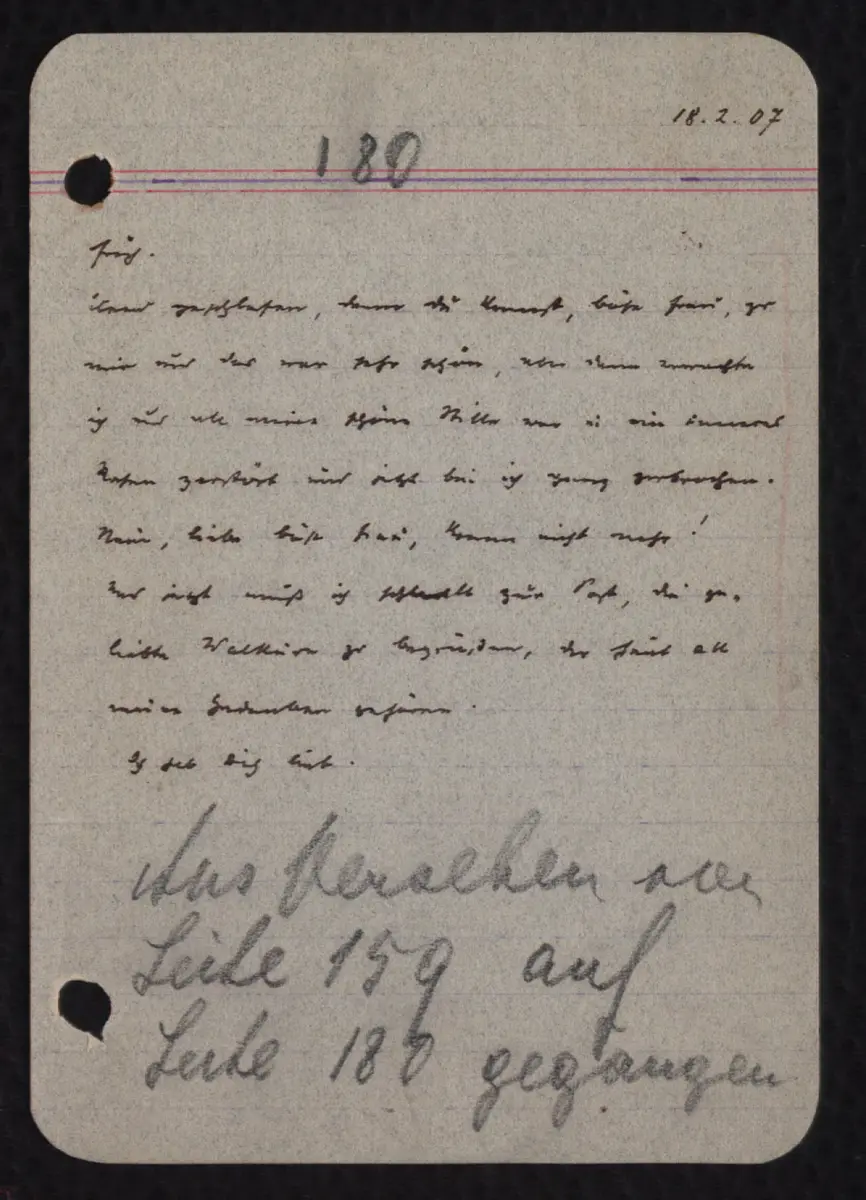 18.2.07
180
früh.
geschlafen, dann du kommst, böse Frau, zu
mir und das war sehr schön, aber dann erwachte
ich und all meine schöne Stille war in ein
Rasen zerstört und jetzt bin ich ganz zerbrochen.
Nein, liebe böse Frau, komm nicht mehr!
Und jetzt muß ich schnell zur Post, die ge-
liebte Walküre zu begrüssen, der heut all
meine Gedanken gehören.
Ich hab dich lieb.
Aus Versehen von
Seite 159 auf
Seite 180 gegangen